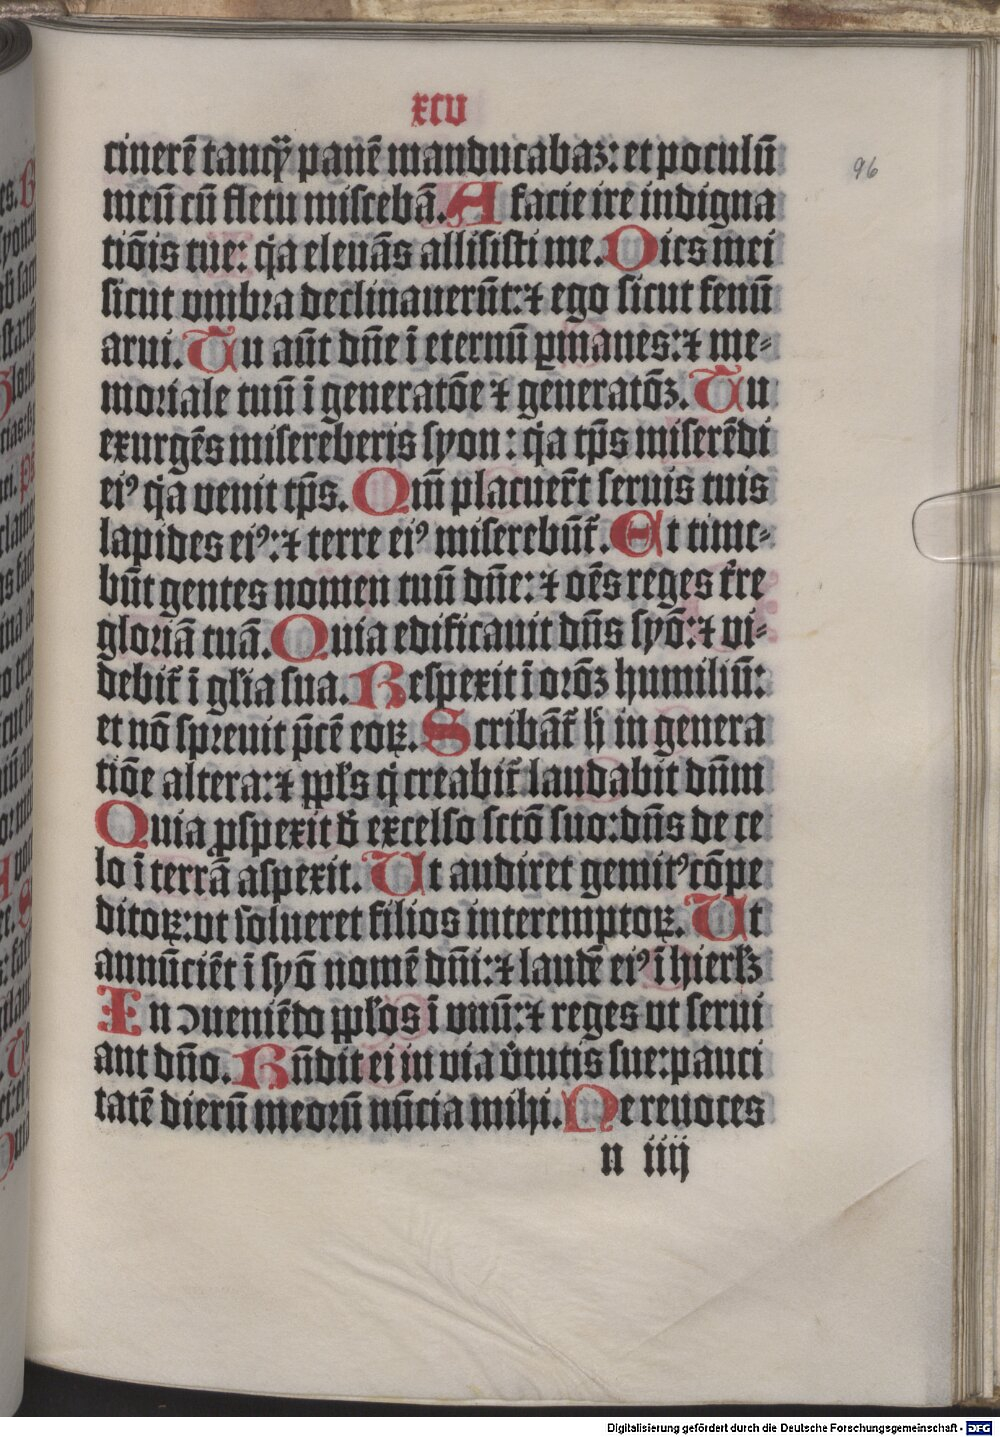 xcv
96
cinerē tancꝙ panē manducabaꝫ: et poculū
meū cū fletu miscebā. A facie ire indigna
tiōis tue: qͥa eleuās allisisti me. Dies mei
sicut vmbra declinauerūt: ⁊ ego sicut fenū
arui. Tu aūt dn̄e ī eternū ꝑmanes: ⁊ me⸗
moriale tuū ī generatōe ⁊ generatōꝫ. Tu
exurgēs misereberis syon: qͥa tp̄s miserēdi
eiꝰ qͥa venit tp̄s. Qm̄ placuer̄t seruis tuis
lapides eiꝰ: ⁊ terre eiꝰ miserebūt᷑. Et time⸗
būt gentes nomen tuū dn̄e: ⁊ oēs reges t᷑re
gloriā tuā. Quia edificauit dn̄s syō: ⁊ vi⸗
debit᷑ ī gl̄ia sua. Respexit ī orōꝫ humiliū:
et nō spreuit p̄cē eoꝝ. Scribāt᷑ h̄ in genera
tiōe altera: ⁊ pp̄ls q̄ creabit᷑ laudabit dn̄m
Quia ꝓspexit d̄ excelso sctō suo: dn̄s de ce
lo ī terrā aspexit. Ut audiret gemitꝰ cōpe
ditoꝝ: vt solueret filios interemptoꝝ. Ut
annūciēt ī syō nomē dn̄i: ⁊ laudē eiꝰ ī hierl̄ꝫ
In ↄueniēdo pp̄los ī vnū: ⁊ reges vt serui
ant dn̄o. Rn̄dit ei in via v̓tutis sue: pauci
tatē dierū meorū nūcia mihi. Ne reuoces
n iiij
Digitalisierung gefördert durch die Deutsche Forschungsgemeinschaft - DFG